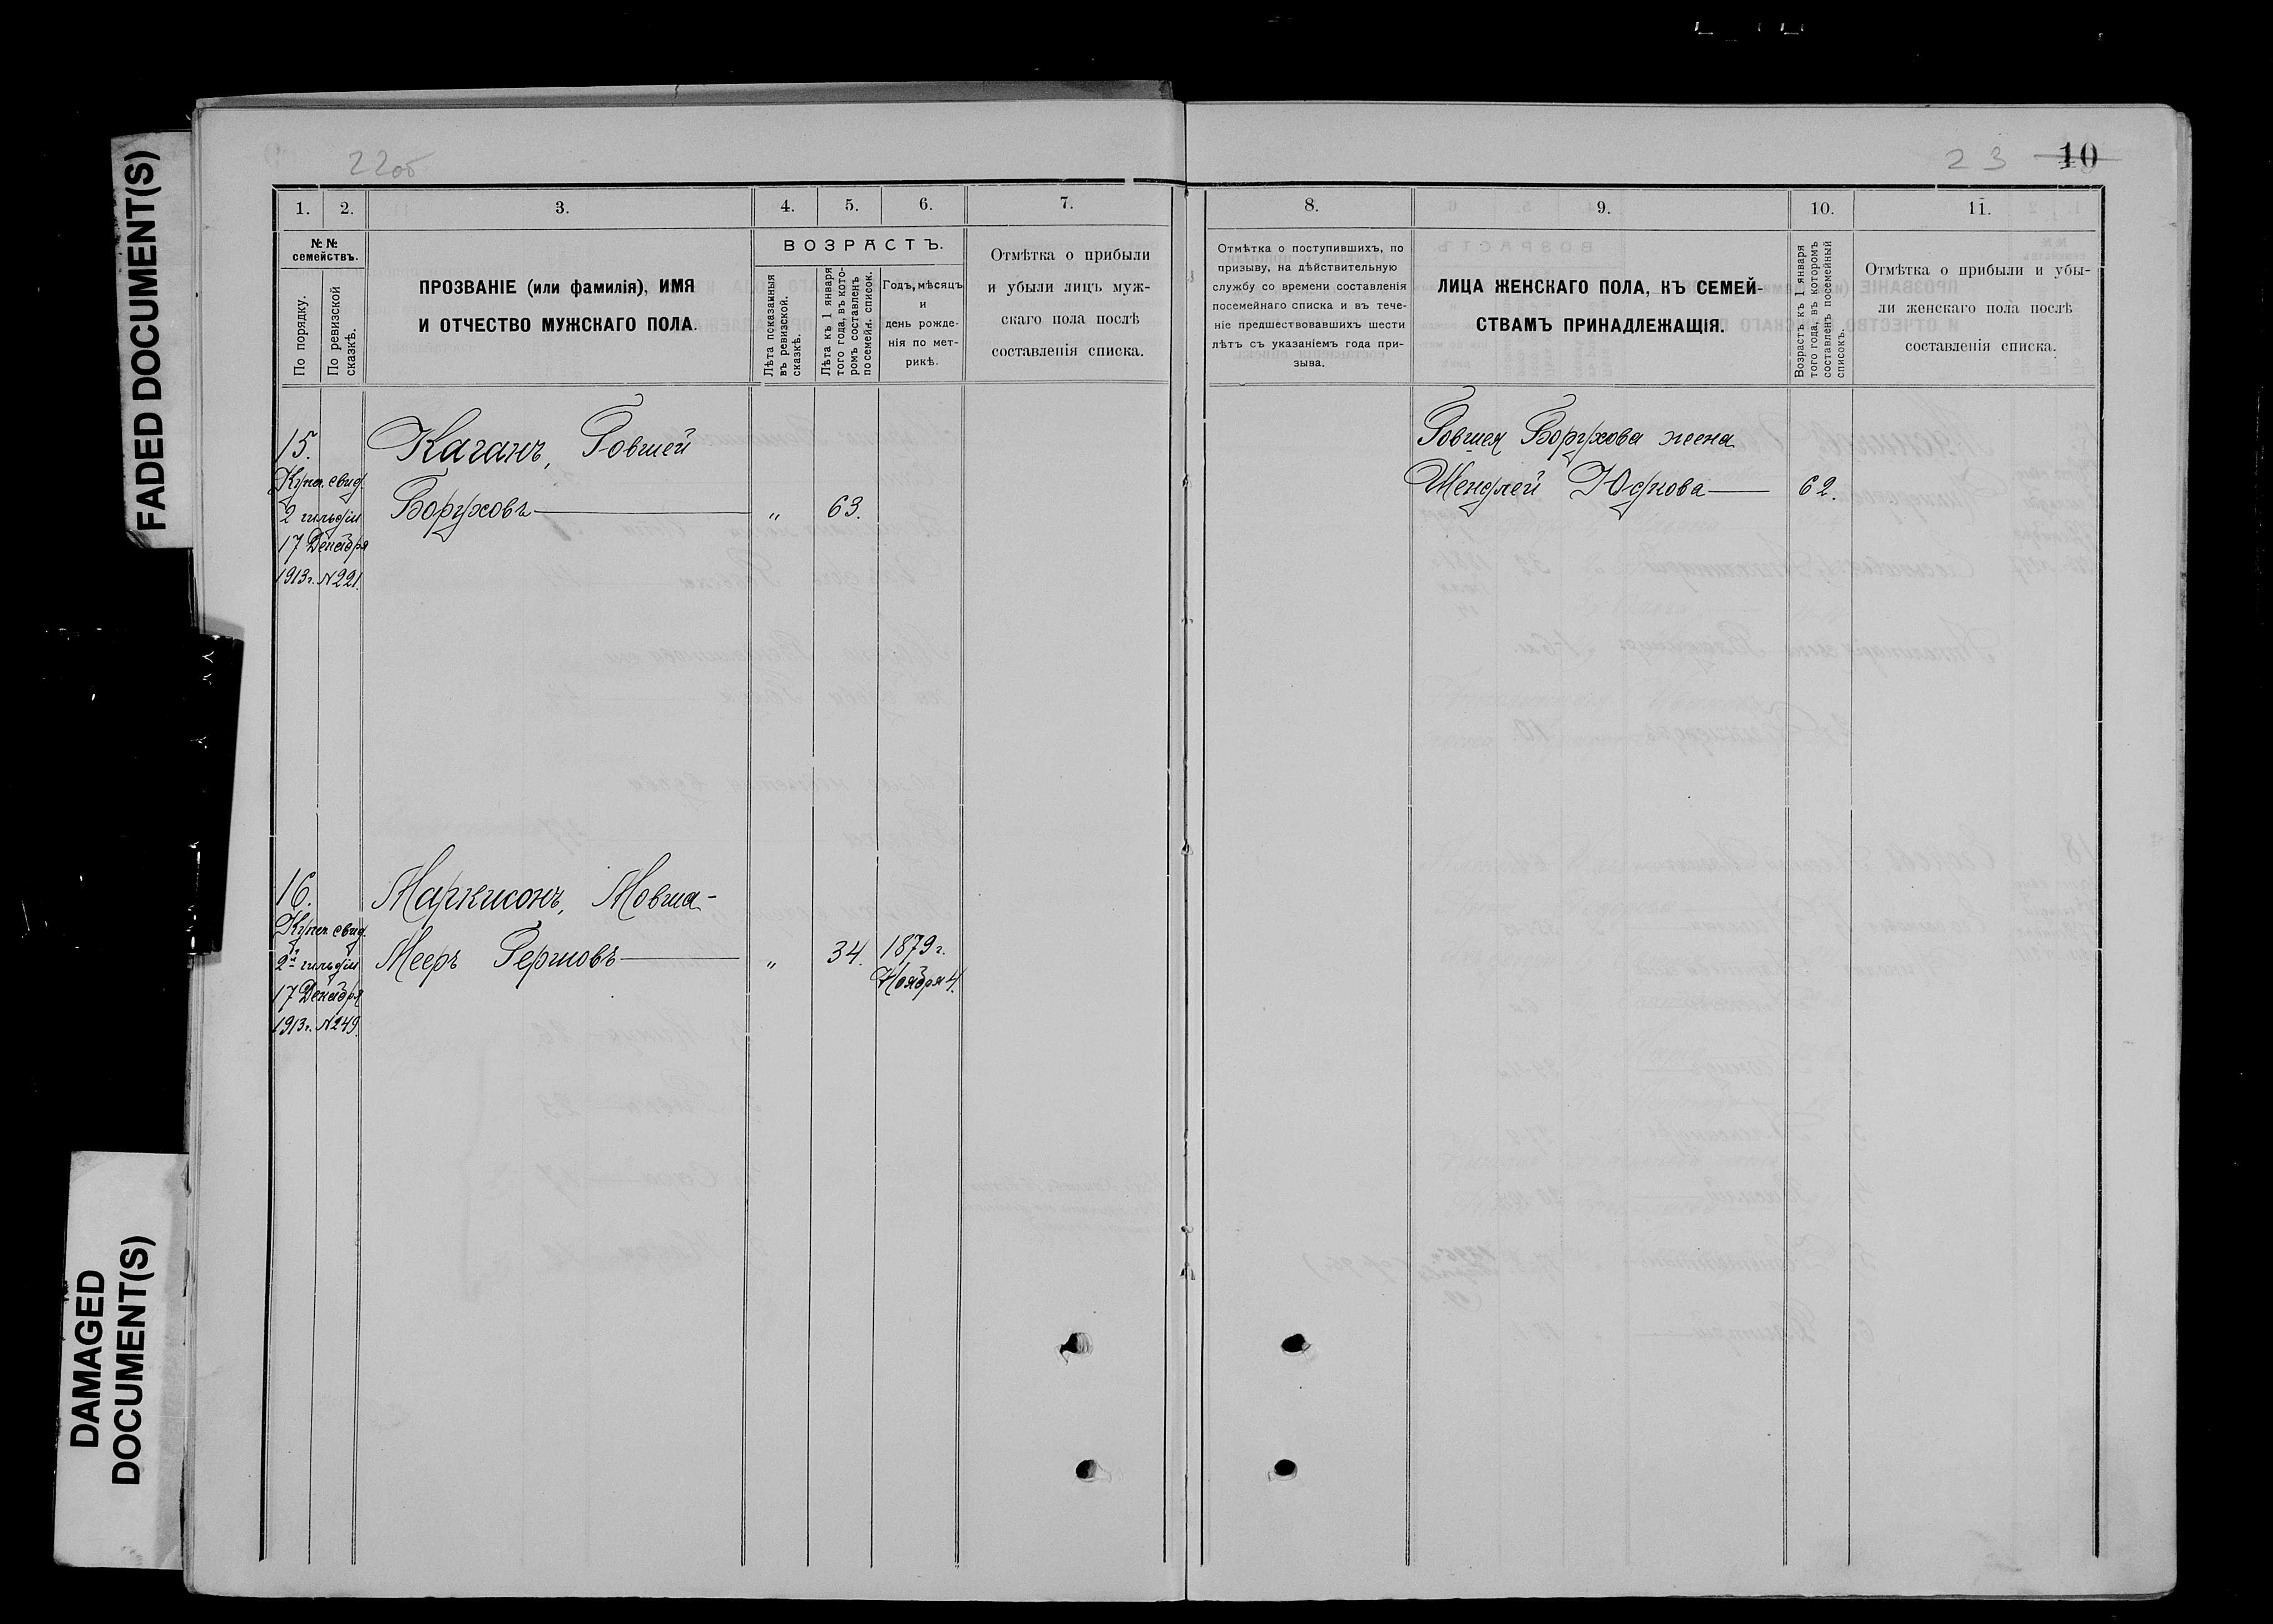 FADED DOCUMENT(S)
DAMAGED
DOCUMENT(S)
22об
23 10
1. 2. 3. 4. 5. 6. 7.
№ №
семействъ.
По порядку.
По ревизской
сказкѣ.
ПРОЗВАНІЕ (или фамилія), ИМЯ
И ОТЧЕСТВО МУЖСКАГО ПОЛА.
ВОЗРАСТЪ.
Лѣта показанныя
въ ревизской
сказкѣ.
Лѣта къ 1 января
того года, въ кото-
ромъ составленъ
посемейн. список.
Годъ, мѣсяцъ
и
день рожде-
нія по мет-
рикѣ.
Отмѣтка о прибыли
и убыли лицъ муж-
скаго пола послѣ
составленія списка.
15.
Купч. свид.
2 гильдіи
17 Декабря
1913г. №221.
Каганъ, Ровшей
Боруховъ „ 63.
16.
Купеч. свид.
2й гильдіи
17 Декабря
1913г. №249.
Маркисонъ, Мовша-
Мееръ Гершовъ „ 34. 1879г.
Ноября 4.
8. 9. 10. 11.
Отмѣтка о поступившихъ, по
призыву, на дѣйствительную
службу со времени составленія
посемейнаго списка и въ тече-
ніе предшествовавшихъ шести
лѣтъ съ указаніемъ года при-
зыва.
ЛИЦА ЖЕНСКАГО ПОЛА, КЪ СЕМЕЙ-
СТВАМЪ ПРИНАДЛЕЖАЩІЯ.
Возрастъ къ 1 января
того года, въ которомъ
составленъ посемейный
списокъ.
Отмѣтка о прибыли и убы-
ли женскаго пола послѣ
составленія списка.
Ровшея Борухова жена
Шендлей Юднова 62.